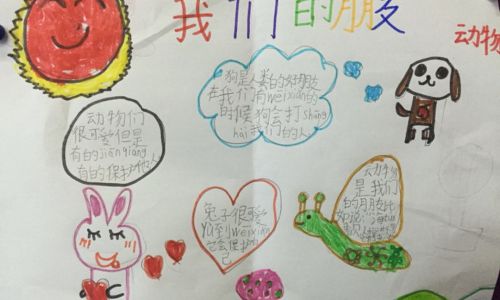 我们的朋友
动物
狗是人类的好朋友
在我们有weixian的
时候狗会打shāng
hài我们的人
动物们
很可爱但是
有的jiānqiáng
有的保护他人
兔子很可爱
yù到weixian
它会保护自
己
动物
是我们
的朋友比